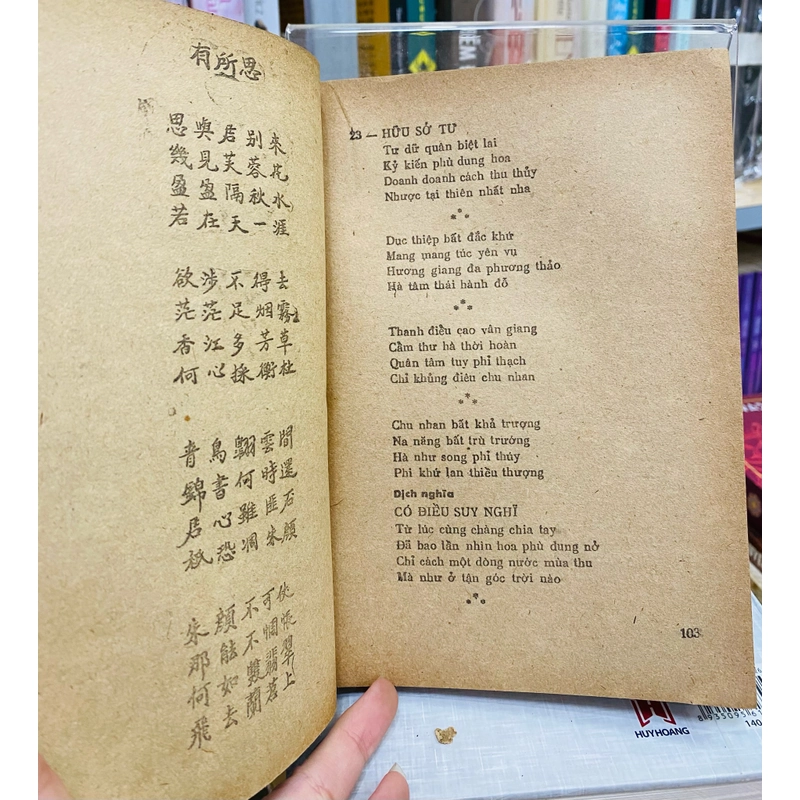 有所思
思與君别來
幾見芙蓉花
盈盈隔秋水
若在天一涯
欲涉不得去
茫茫足烟霧
香江多芳草
何心採衡杜
青鳥翺雲間
錦書何時還
君心雖匪石
秪恐凋朱顔
朱顔不可
那能不惆悵
何如雙翡翠
飛去蘭苕上
23 — HỮU SỞ TƯ
Tư dữ quân biệt lai
Kỷ kiến phù dung hoa
Doanh doanh cách thu thủy
Nhược tại thiên nhất nha
Dục thiệp bất đắc khứ
Mang mang túc yên vụ
Hương giang đa phương thảo
Hà tâm thái hành đỗ
Thanh điểu cao vân giang
Cẩm thư hà thời hoàn
Quân tâm tuy phỉ thạch
Chỉ khủng điêu chu nhan
Chu nhan bất khả trượng
Na năng bất trù trướng
Hà như song phỉ thúy
Phi khứ lan thiều thượng
Dịch nghĩa
CÓ ĐIỀU SUY NGHĨ
Từ lúc cùng chàng chia tay
Đã bao lần nhìn hoa phù dung nở
Chỉ cách một dòng nước mùa thu
Mà như ở tận góc trời nào
103
HUYHOANG